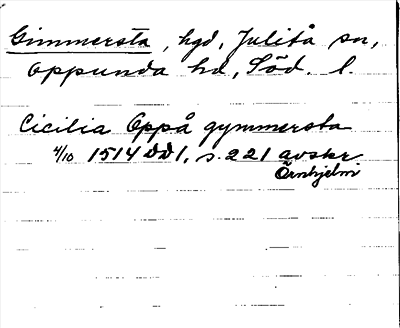 Gimmersta, hgd, Julita sn,
Oppunda hd, Söd. l.
Cicilia Oppå gymmersta
4/10 1514 DD1, s. 221 avskr.
Örnhjelm